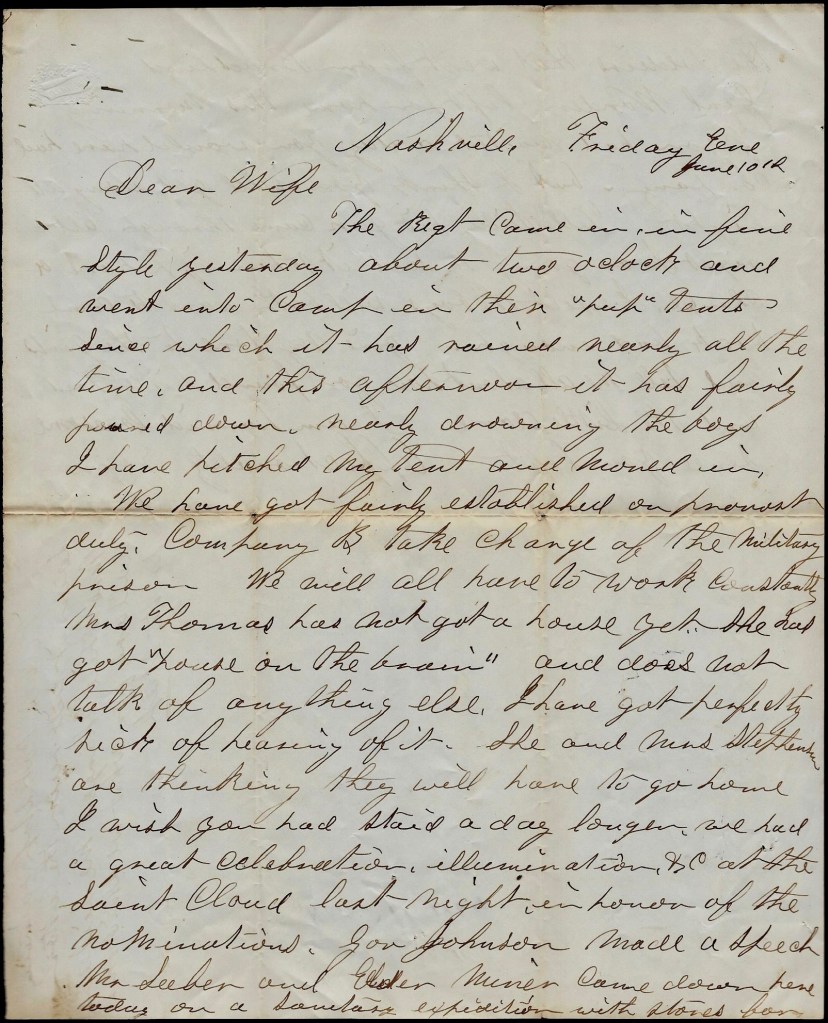 Nashville, Friday Eve
June 10th
Dear Wife
The Regt Came in, in fine
Style yesterday about two oclock and
went into Camp in their "pup" Tents
Since which it has rained nearly all the
time, and this afternoon it has fairly
poured down, nearly drowning the boys
I have pitched My Tent and Moved in,
We have got fairly established on provost
duty. Company B take charge of the Military
prison We will all have to work Constantly
Mrs Thomas has not got a house yet.. She has
got "house on the brain" and does not
talk of anything else. I have got perfectly
sick of hearing of it. She and Mrs Stephenson
are thinking they will have to go home
I wish you had staid a day longer, we had
a great celebration, illumination, &C at the
Saint Cloud last night, in honor of the
nominations. Gov Johnson made a speech
Mr Seeber and Elder Miner Came down here
today on a Sanitary expidition with stores for